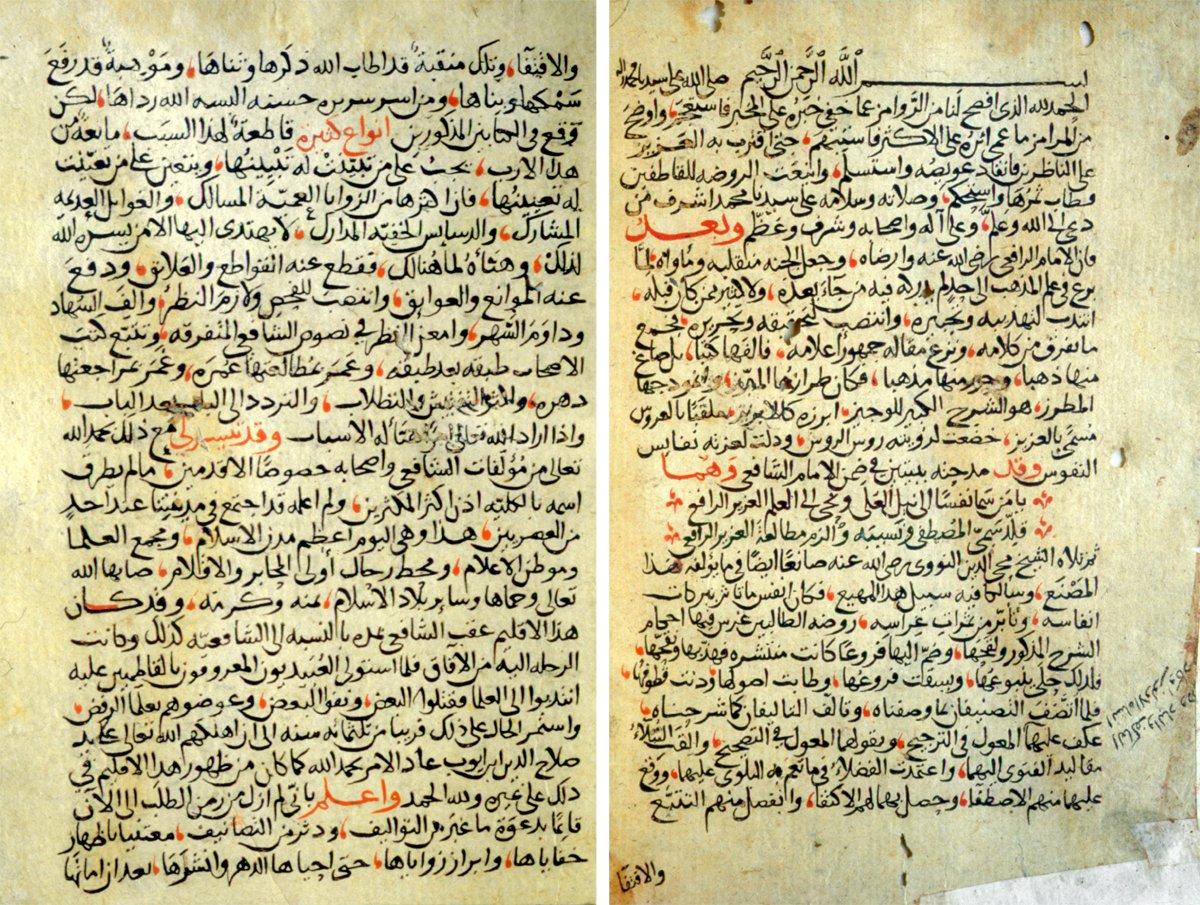 بسم الله الرحمن الرحيم صلى الله على سيدنا محمد
الحمد لله الذي افصح لنا من الزوامز عما خفي خبره على المخبر فاستعجم، واوضح
من المرامز ما عمي اثره على الاكثر فاستبهم، حتى اقترب به العزيز
على الناظرين فانقاد عويصه واستسلم، واينعت الروضه للقاطفين
وطاب ثمرها واستحكم، وصلاته وسلامه على سيدنا محمد اشرف من
دعى الى الله وعلم، وعلى آله واصحابه وشرف وعظم وبعد
فان الامام الرافعي رضي الله عنه وارضاه، وجعل الجنة منقلبه وماواه لما
برع في علم المذهب الى حد لم يدركه فيه من جاء بعده، ولا كثير ممن كان قبله،
انتدب لتهذيبه وتحبيره، وانتصب لتحقيقه وتحريره، بجمع
ما تفرق من كلامه، ونزع مقاله جمهور اعلامه، فالفها كتبا، بل صاغ
منها ذهبا، وحرر منها مذهبا، فكان طرازها المذهب، وانموذجها
المطرز، هو الشرح الكبير للوجيز، ابرزه كالابريز، ملقبا بالعروس
مسمى بالعزيز، خضعت لرويته روس الروس، ودلت لعزته نفايس
النفوس وقد مدحته ببيتين في ضمن الامام الشافعي وهما
يا من سما نفسا الى نيل العلى ونحى الى العلم العزيز الرافعي
قلد سمي المصطفى ونسيبه والزم مطالعة العزيز الرافعي
ثم تلاه الشيخ محي الدين النووي رضي الله عنه صانعا ايضا في ما يؤلفه هذا
المصنع، وسالكا فيه سبيل هذا المهيع، فكان انفس ما تاثر ببركات
انفاسه، وتاثر من ثمرات غراسه، روضه الطالبين غرس فيها احكام
الشرح المذكور ولقحها، وضم اليها فروعا كانت منتشره فهذبها ونقحها،
فلذلك حلى ينبوعها، وبسقت فروعها، وطابت اصولها ودنت قطوفها،
فلما اتصف التصنيفان بما وصفناه، وتالف التاليفان كما شرحناه،
عكف عليهما المعول في الترجيح، وبقولهما المعول في التصحيح، والقت النبلاء
مقاليد الفتوى اليهما، واعتمدت الفضلاء في ما تعم به البلوى عليهما، ووقع
عليهما منهم الاصطفا، وحصل بهما لهم الاكتفا، وانفصل منهم التتبع
والاقتفا
والاقتفا، وتلك منقبة قد اطاب الله ذكرها وثناها، وموهبة قد رفع
سمكها وبناها، ومن اسر سريره حسنه البسه الله رداها، لكن
وقع في الكتابين المذكورين انواع كثيره قاطعة لهذا السبب، مانعة من
هذا الارب، يجب على من تبينت له تبيينها، ويتعين على من تعينت
له تعيينها، فان اكثرها من الزوايا العمية المسالك، والغوايل العديمه
المشارك، والدسايس الخفيه المدارك، لا يهتدى اليها الا من يسره الله
لذلك، وهيأه لما هنالك، فقطع عنه القواطع والعلايق، ودفع
عنه الموانع والعوايق، وانتصب للفحص ولازم النظر، والف السهاد
وداوم السهر، وامعن النظر في نصوص الشافعي المتفرقه، وتتبع كتب
الاصحاب طبقة بعد طبقه، وعمر بمطالعتها عمره، وغمر بمراجعتها
دهره، والتطلاب، والتردد الى الباب بعد الباب،
واذا اراد الله تعالى امرا هيأ له الاسباب وقد تيسر لي مع ذلك بحمد الله
تعالى من مؤلفات الشافعي واصحابه خصوصا الاقدمين، ما لم يطرق
اسمه بالكليه اذن اكثر المكثرين، ولم اعلمه قد اجتمع في مدينتنا عند احد
من العصريين، هذا وهي اليوم اعظم مدن الاسلام، ومجمع العلما
وموطن الاعلام، ومحط رحال اولي المحابر والاقلام، صانها الله
تعالى وحماها وساير بلاد الاسلام، بمنه وكرمه، وقد كان
هذا الاقليم عقب الشافعي عمده بالنسبه الى الشافعيه كذلك وكانت
الرحله اليه من الآفاق فلما استولى العبيديون المعروفون بالفاطميين عليه
انتدبوا الى العلما فقتلوا البعض، ونفوا البعض، وعوضوهم بعلما الرفض،
واستمر الحال على ذلك قريبا من ثلثمائه سنه الى ان اهلكهم الله تعالى على يد
صلاح الدين ابن ايوب عاد الامر بحمد الله كما كان من ظهور اهل هذا الاقليم في
ذلك على غيره ولله الحمد واعلم باني لم ازل من زمن الطلب الى الآن
قائما بدعوة ما غبر من التواليف، ودثر من التصانيف، معتنيا باظهار
خفاياها، وابراز زواياها، حتى احياها الدهر وانشرها، بعد ان اماتها